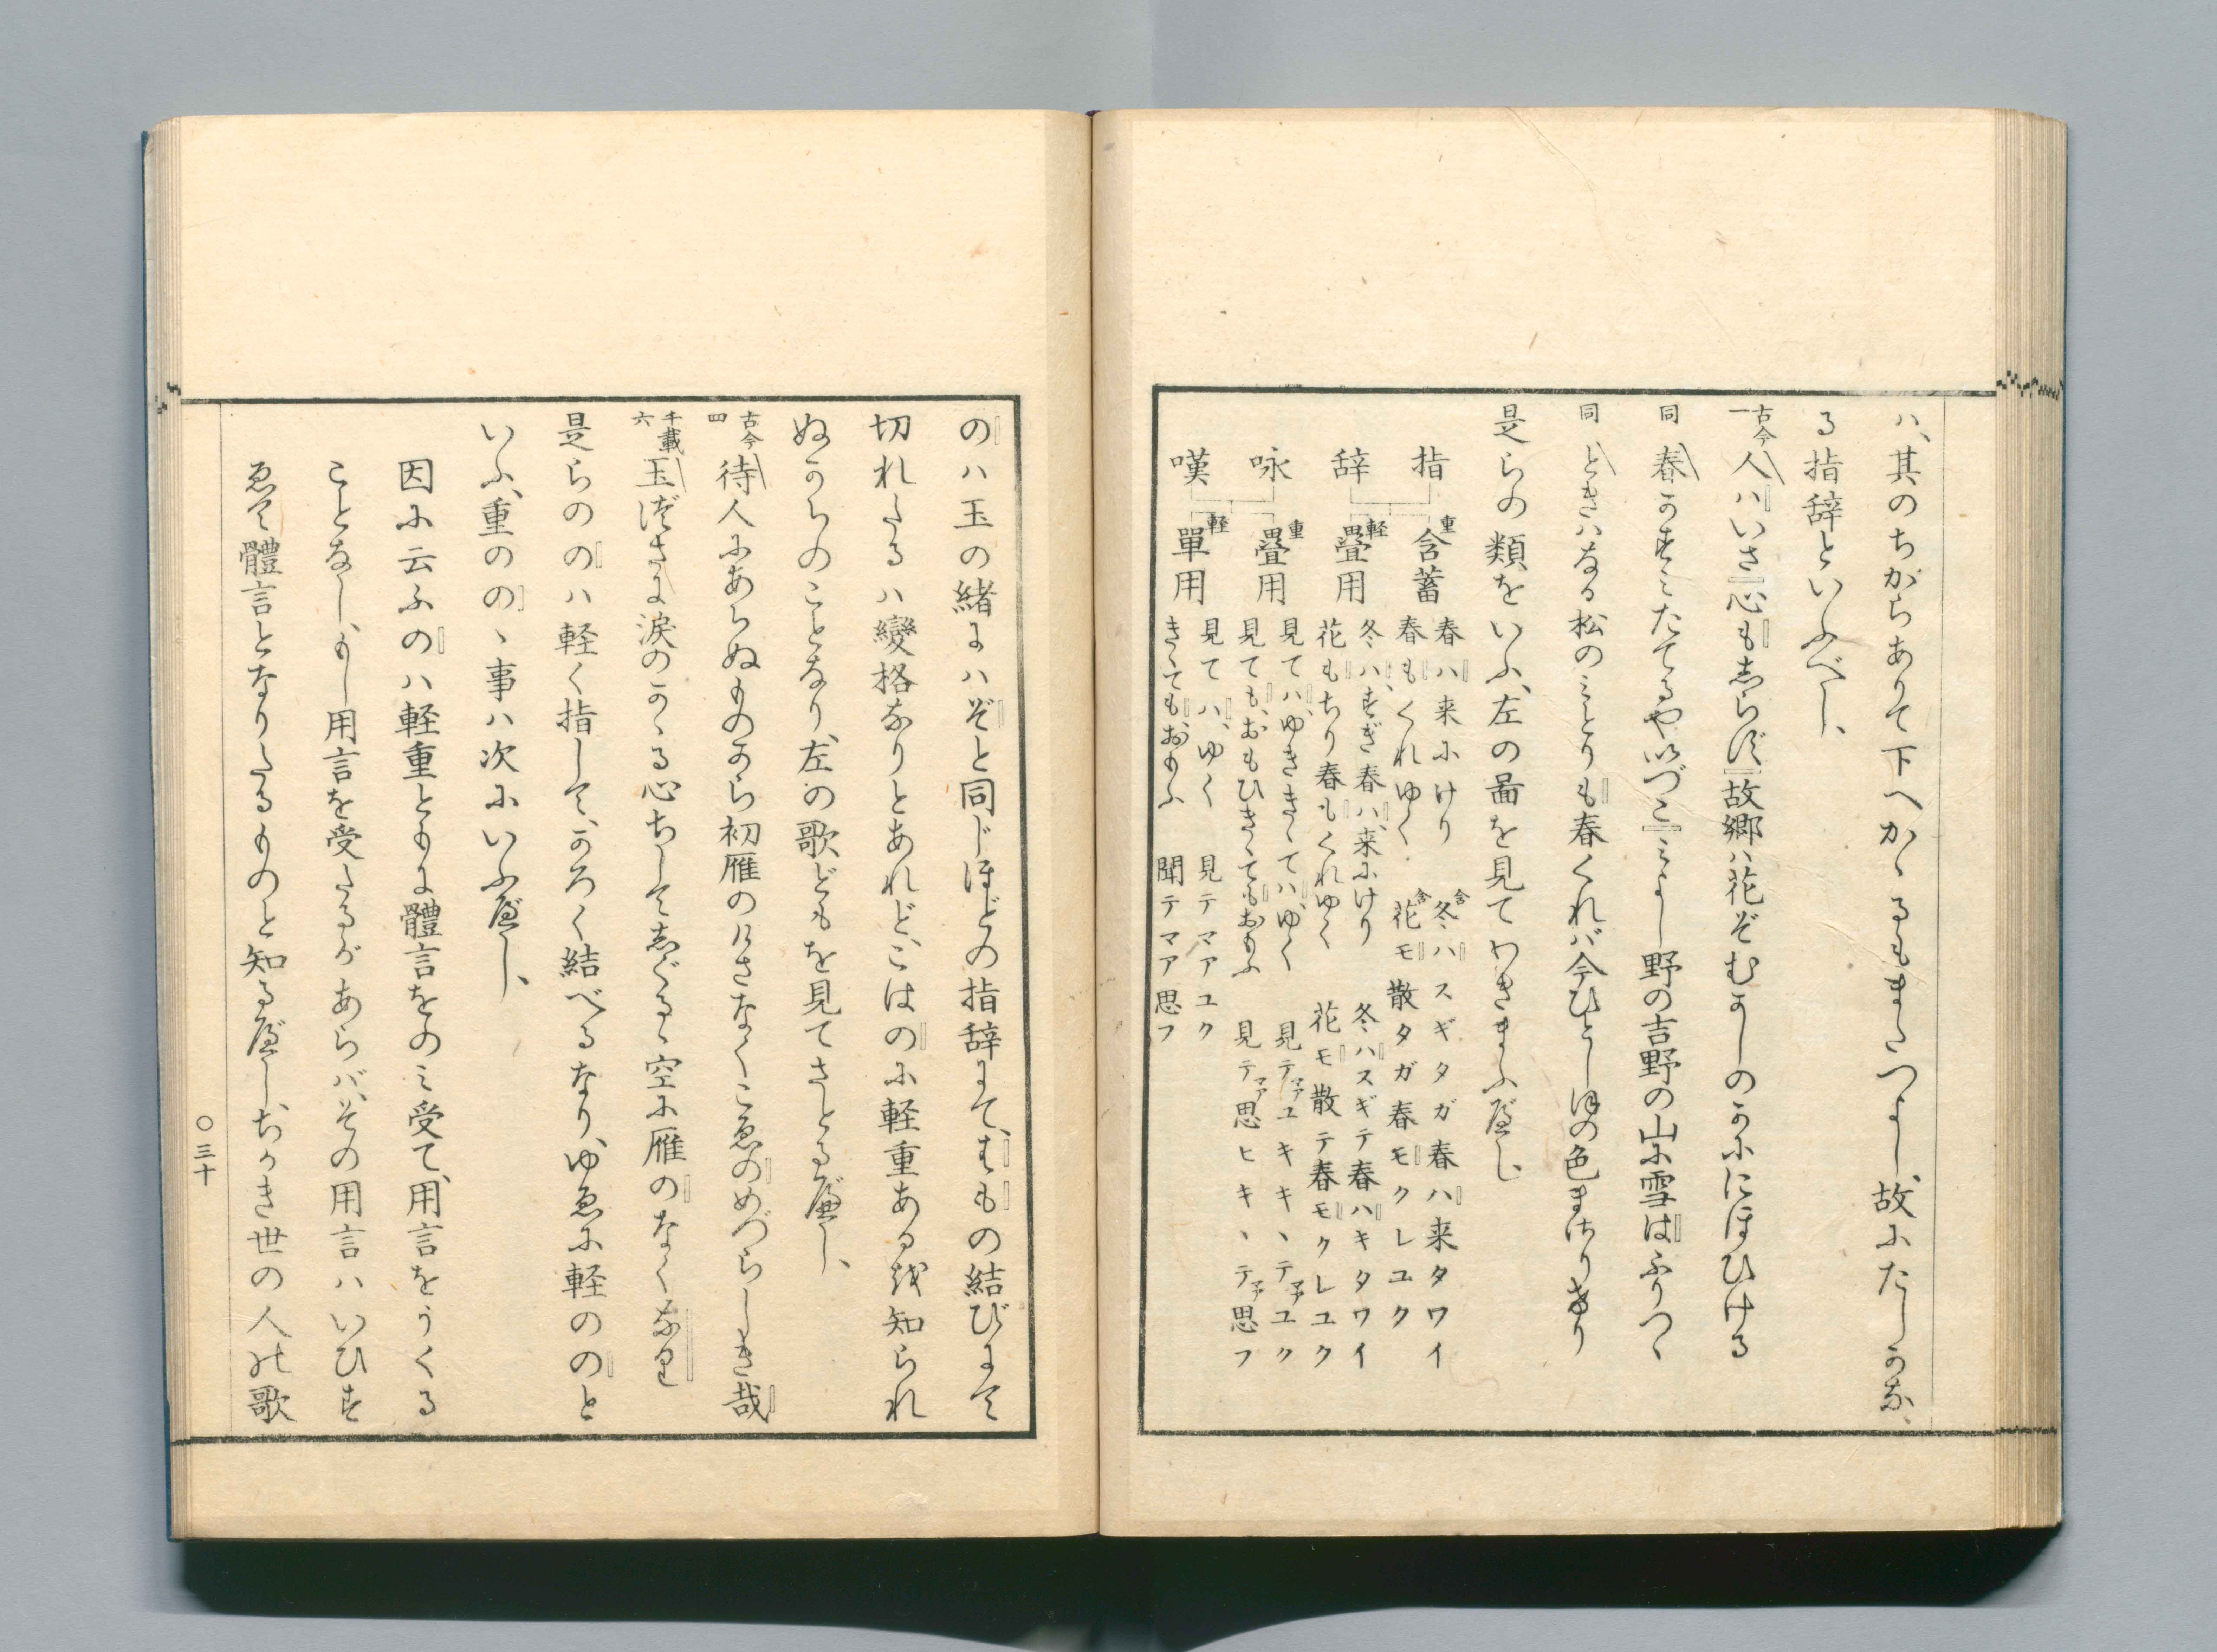 ハ、其のちからありて下へかゝるもまたつよし、故にたしかな、
る指辞といふべし、
古今一 人ハいさ心もしらず故郷ハ花ぞむかしのかににほひける
同 春かすミたてるやいづこミよし野の吉野の山に雪はふりつゝ
同 ときハなる松のミとりも春くれバ今ひとしほの色まさりけり
是らの類をいふ、左の啚を見てわきまふべし
指辞 重 含蓄 春ハ来にけり 含 冬ハスギタガ春ハ来タワイ
春もくれゆく 含 花モ散タガ春モクレユク
軽 畳用 冬ハ、すぎ春ハ、来にけり 冬ハスギテ春ハキタワイ
花もちり春もくれゆく 花モ散テ春モクレユク
咏嘆 重 畳用 見てハ、ゆききゝてハ、ゆく 見テマアユキキヽテマアユク
見ても、おもひきゝてもおもふ 見テマア思ヒキヽテマア思フ
軽 單用 見てハ、ゆく 見テマアユク
きゝても、おもふ 聞テマア思フ
のハ玉の緒にハぞと同じほどの指辞にて、はもの結びにて
切れたるハ變格なりとあれど、こはのに軽重ある越知られ
ぬからのことなり、左の歌どもを見てさとるべし、
古今四 待人にあらぬものから初雁のけさなくこゑのめづらしき哉
千載六 玉づさに涙のかゝる心ちしてしぐるゝ空に雁のなくなり
是らののハ軽く指して、かろく結べるなり、ゆゑに軽ののと
いふ、重ののゝ事ハ次にいふべし、
因に云ふのハ軽重ともに體言をのミ受て、用言をうくる
ことなし、もし用言を受たるがあらバ、その用言ハいひす
ゑて體言となりたるものと知るべし、ちかき世の人の歌
〇三十